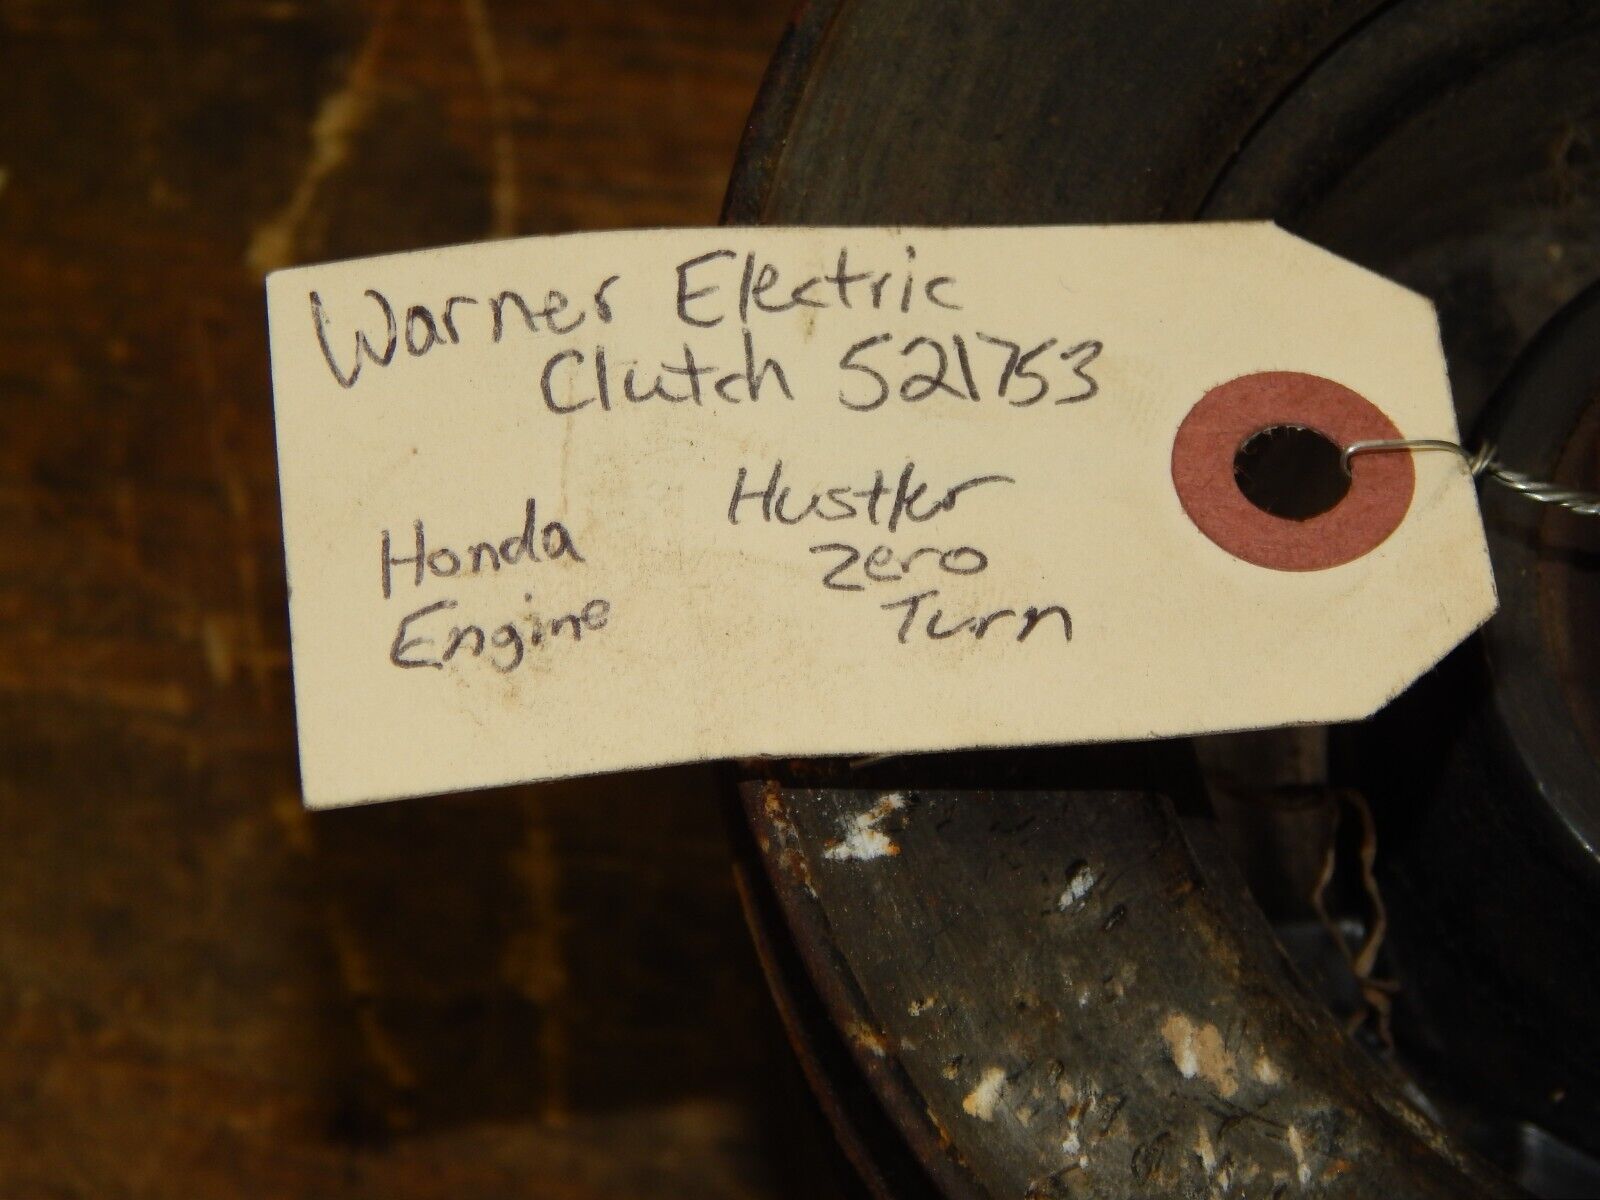 Warner Electric
Clutch 521753
Honda
Engine
Hustler
Zero
Turn